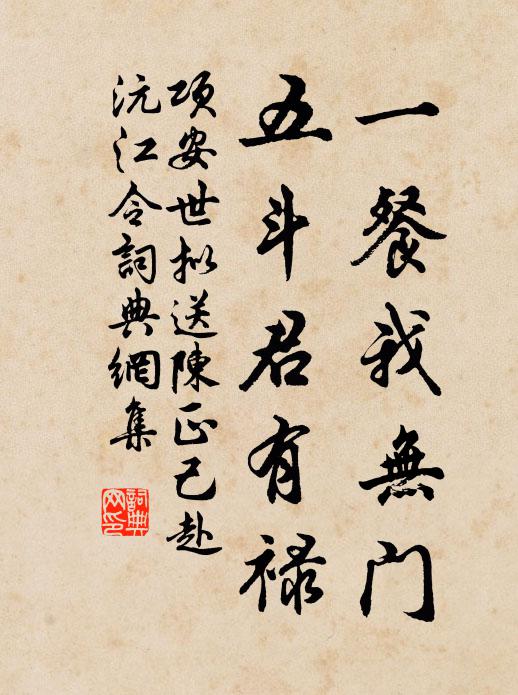 一餐我無門
五斗君有祿
項安世拟送陳正己赴
沅江令詞典網集
詞典网印